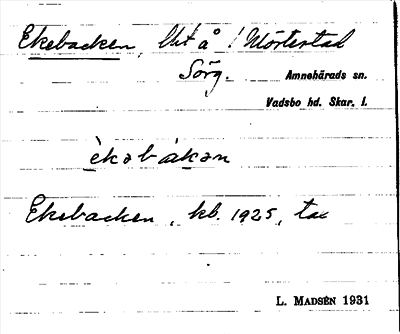 Ekebacken, lht å Mörterstad
Sörg.
Amnehärads sn.
Vadsbo hd. Skar. l.
èkəbákən
Ekebacken, kb. 1925, ta
L. MADSÉN 1931